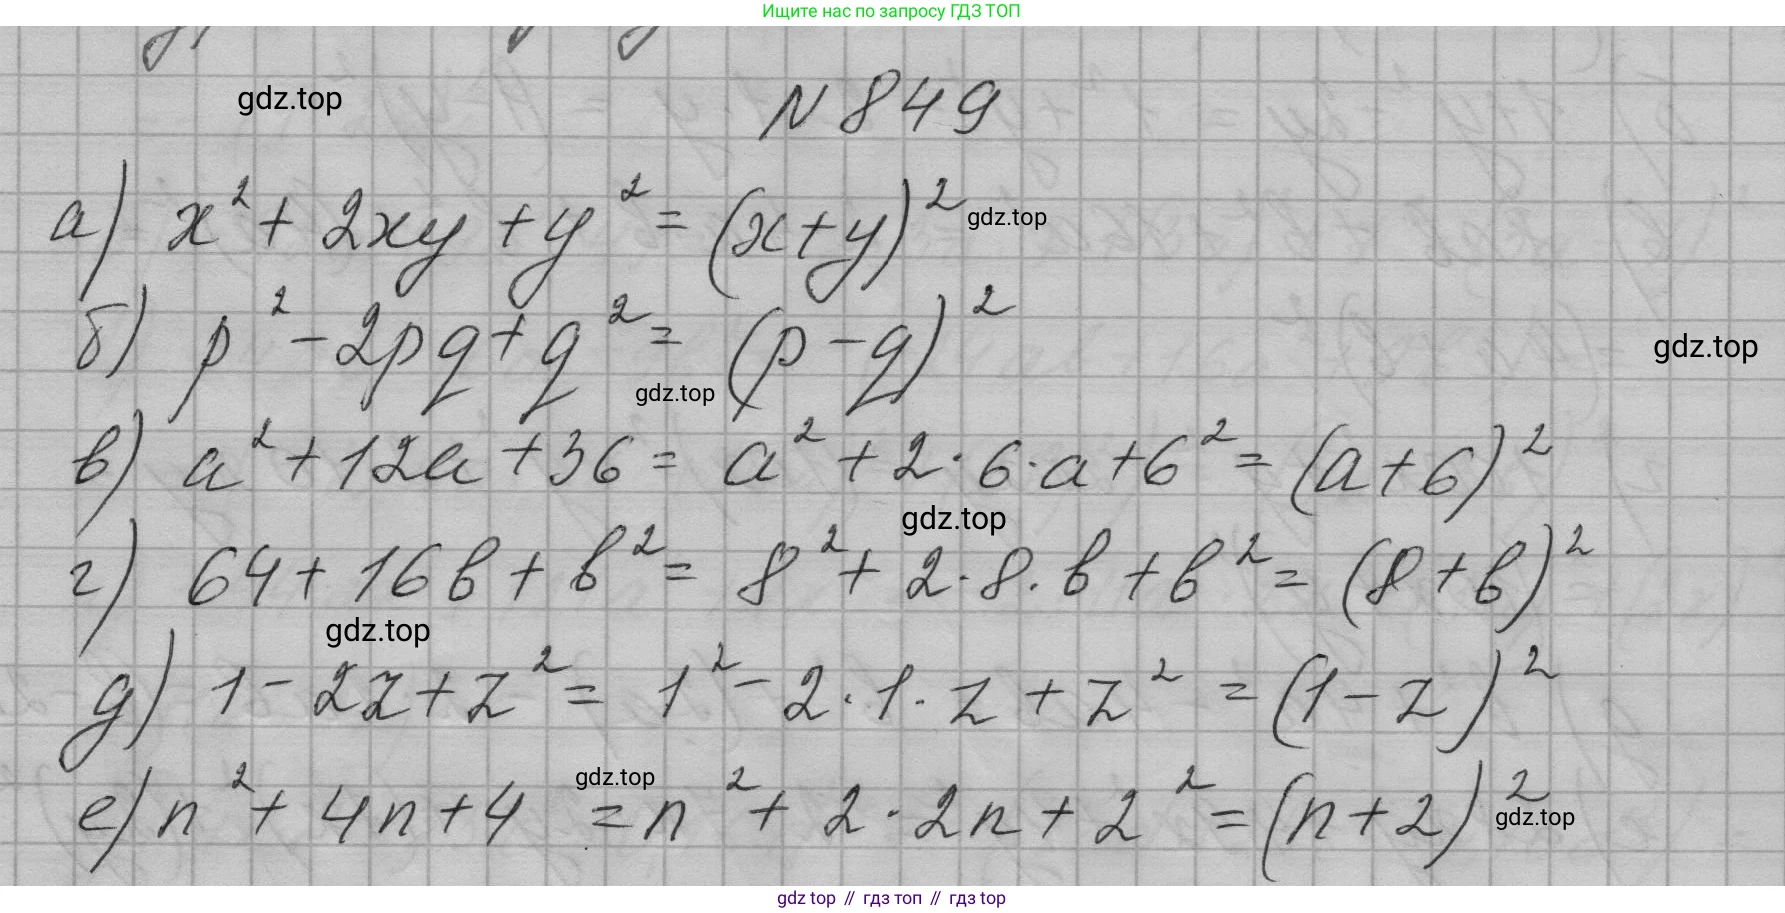 Ищите нас по запросу ГДЗ ТОП
gdz.top
N 849
а) x² + 2xy + y² = (x+y)² gdz.top
б) p² - 2pq + q² = (p - q)²
gdz.top
gdz.top
в) a² + 12a + 36 = a² + 2·6·a + 6² = (a + 6)²
gdz.top
г) 64 + 16b + b² = 8² + 2·8·b + b² = (8 + b)²
gdz.top
д) 1 - 2z + z² = 1² - 2·1·z + z² = (1 - z)²
gdz.top
е) n² + 4n + 4 = n² + 2·2n + 2² = (n + 2)²
gdz.top
gdz top // гдз топ // гдз top